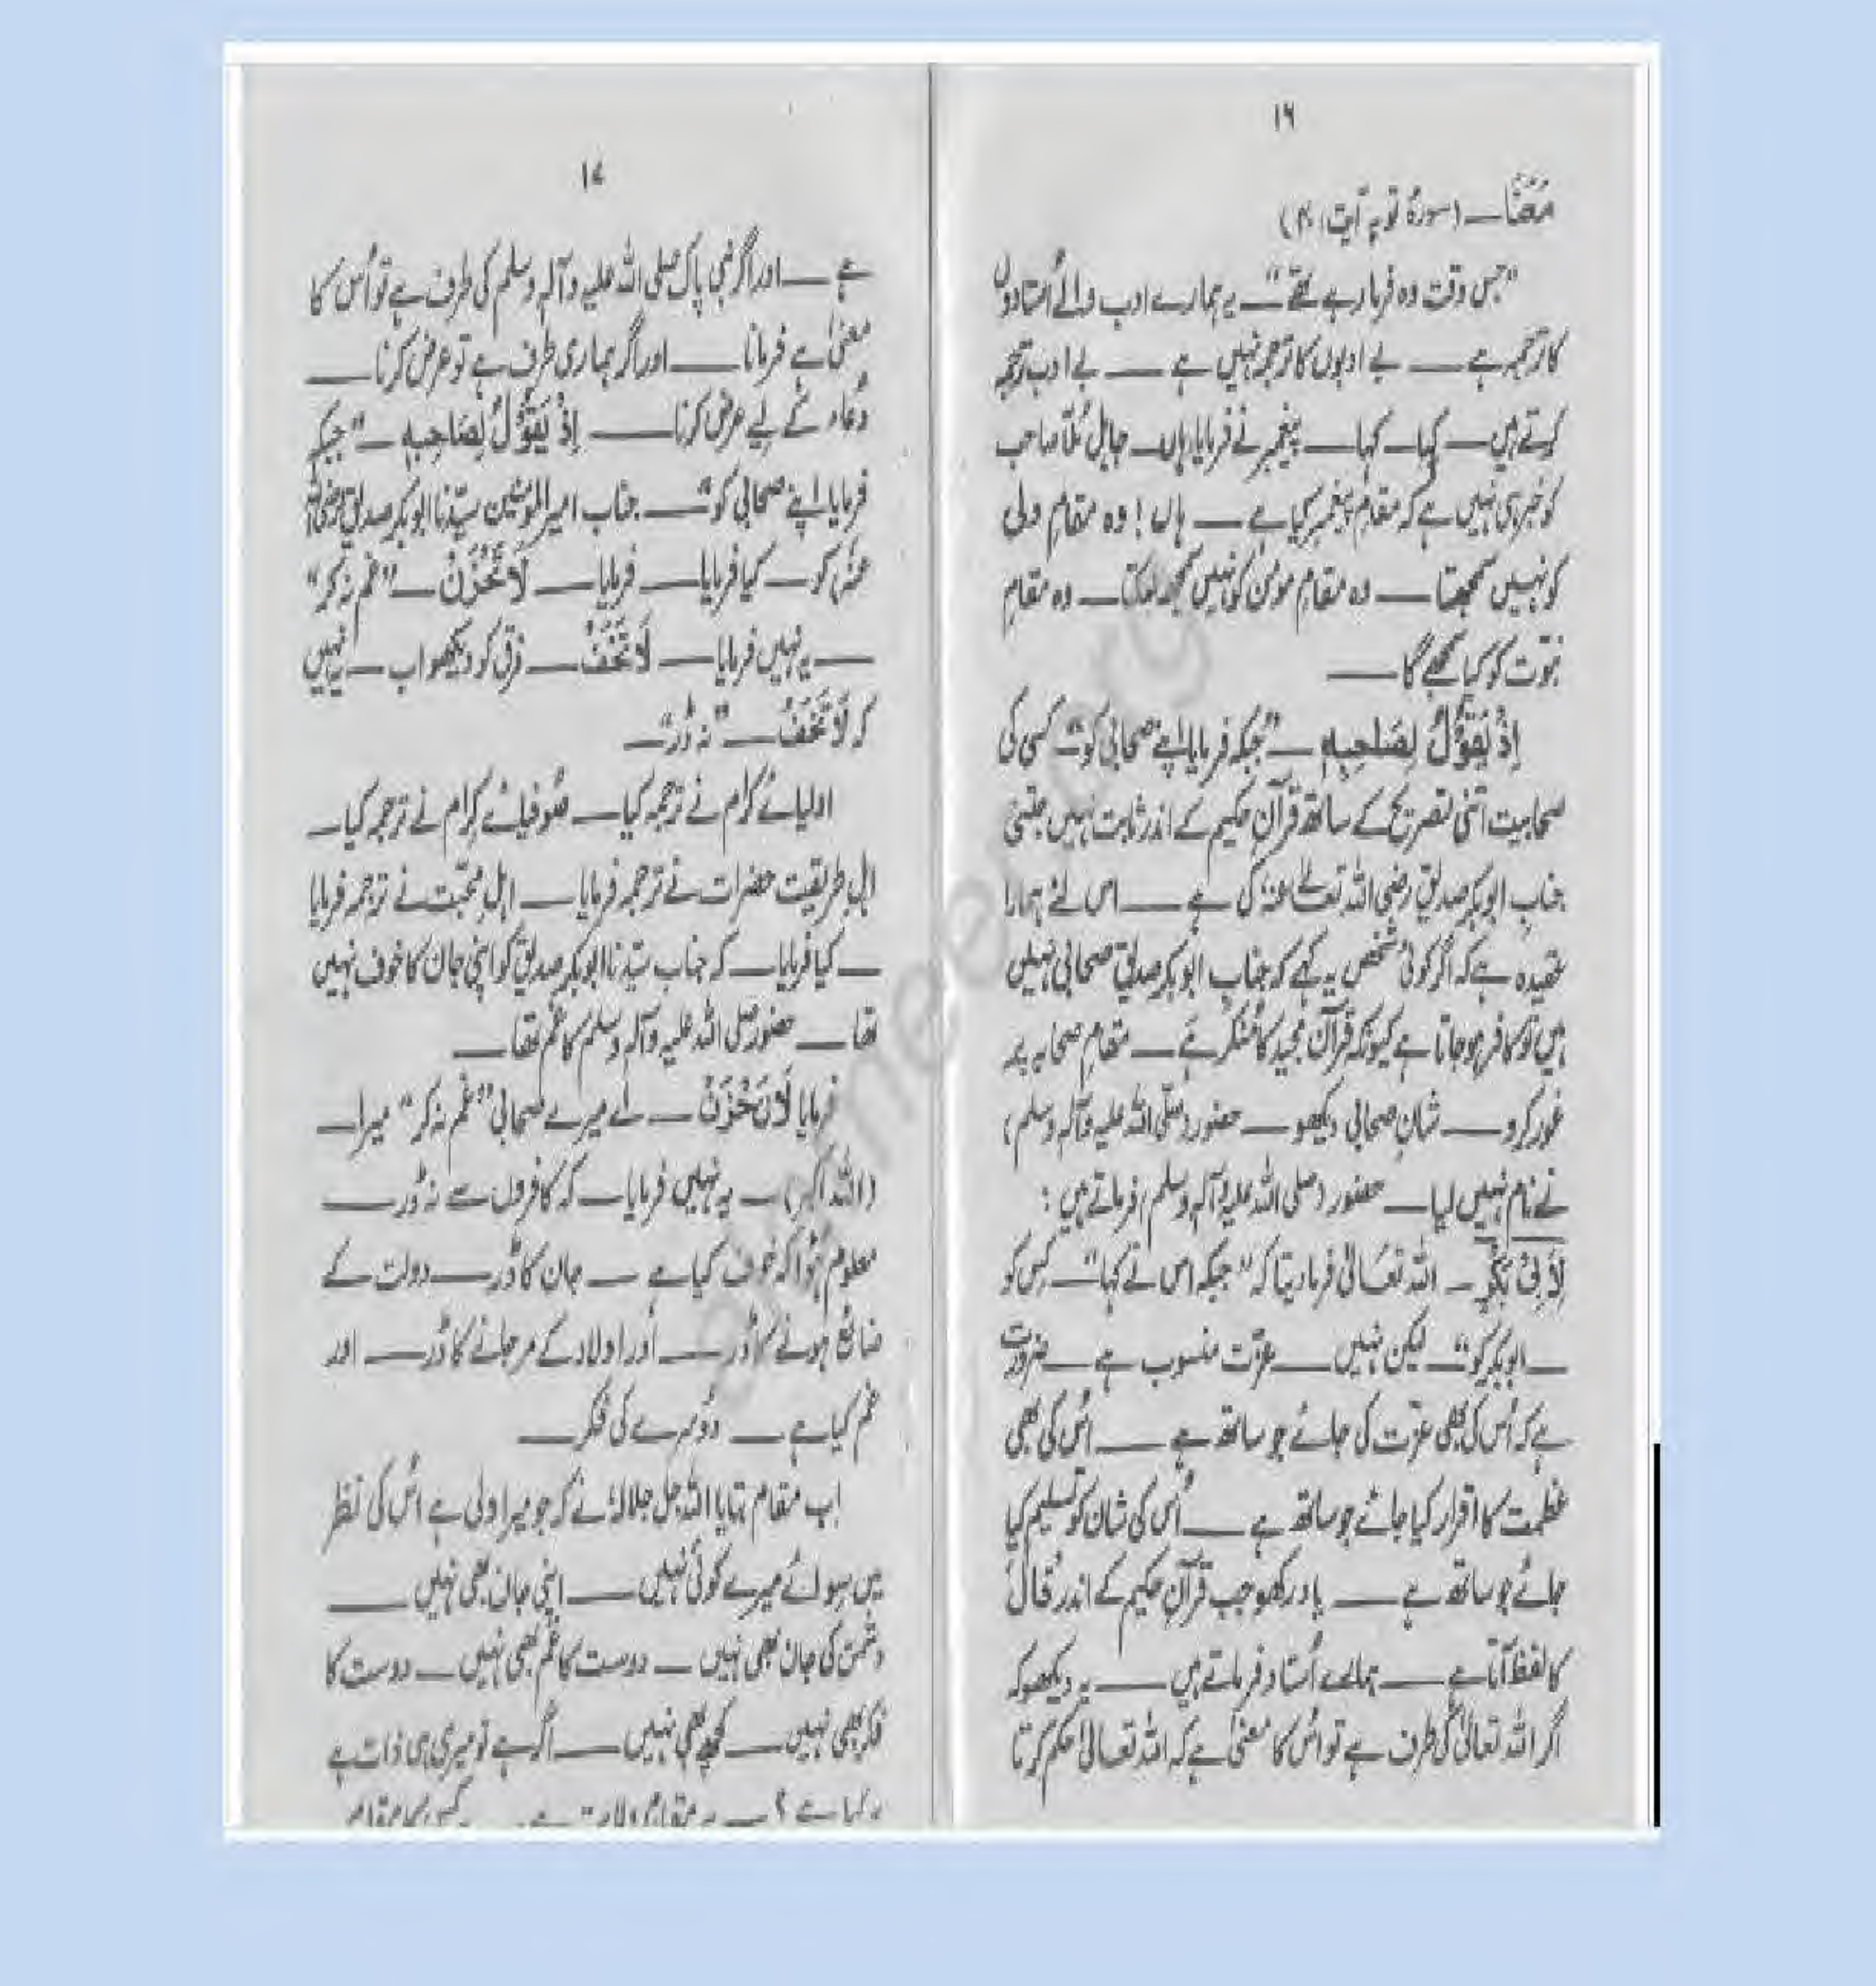 ۱۶
مَعَنَا — (سورۂ توبہ آیت ۴۰)
”جس وقت وہ فرما رہے تھے“ — یہ ہمارے ادب والے اُستادوں
کا ترجمہ ہے — بے ادبوں کا ترجمہ نہیں ہے — بے ادب ترجمہ
کرتے ہیں — کہا — کہا — پیغمبر نے فرمایا ہاں — جاہل مُلّا صاحب
کو خبر ہی نہیں ہے کہ مقامِ پیغمبر کیا ہے — ہاں! وہ مقامِ ولی
کو نہیں سمجھتا — وہ مقامِ مومن کو نہیں سمجھ سکتا — وہ مقامِ
نبوّت کو کیا سمجھے گا —
اِذْ يَقُوْلُ لِصَاحِبِهٖ — ”جبکہ فرمایا اپنے صحابی کو“ کسی کی
صحابیت اتنی تصریح کے ساتھ قرآنِ حکیم کے اندر ثابت نہیں جتنی
جنابِ ابوبکر صدیق رضی اللہ تعالےٰ عنہٗ کی ہے — اس لئے ہمارا
عقیدہ ہے کہ اگر کوئی شخص یہ کہے کہ جنابِ ابوبکر صدیق صحابی نہیں
ہیں تو کافر ہو جاتا ہے کیونکہ قرآن مجید کا مُنکر ہے — مقامِ صحابہ پر
غور کرو — شانِ صحابی دیکھو — حضور (صلّی اللہ علیہ وآلہ وسلم)
نے نام نہیں لیا — حضور (صلی اللہ علیہ وآلہ وسلم) فرماتے ہیں:
لِاَبِیْ بَکْرٍ — اللہ تعَالیٰ فرما دیتا کہ ”جبکہ اس نے کہا“ — کِس کو
— ابوبکر کو“ — لیکن نہیں — عزّت منسوب ہے — ضرورت
ہے کہ اُس کی بھی عزّت کی جائے جو ساتھ ہے — اُس کی بھی
عظمت کا اقرار کیا جائے جو ساتھ ہے — اُس کی شان کو تسلیم کیا
جائے جو ساتھ ہے — یاد رکھو جب قرآنِ حکیم کے اندر قَالَ
کا لفظ آتا ہے — ہمارے اُستاد فرماتے ہیں — یہ دیکھو کہ
اگر اللہ تعالیٰ کی طرف ہے تو اُس کا معنیٰ ہے کہ اللہ تعالیٰ حکم کرتا
۱۷
ہے — اور اگر نبی پاک صلی اللہ علیہ وآلہ وسلم کی طرف ہے تو اُس کا
معنیٰ ہے فرمانا — اور اگر ہماری طرف ہے تو عرض کرنا —
دُعاء کے لیے عرض کرنا — اِذْ يَقُوْلُ لِصَاحِبِهٖ — ”جبکہ
فرمایا اپنے صحابی کو“ — جناب امیرالمومنین سیّدنا ابوبکر صدیق رضی اللہ
عنہٗ کو — کیا فرمایا — فرمایا — لَاتَحْزَنْ — ”غم نہ کر“
— یہ نہیں فرمایا — لَاتَخَفْ — فرق کو دیکھو اب — یہ نہیں
کہ لَاتَخَفْ — ”نہ ڈر“ —
اولیائے کرام نے ترجمہ کیا — صُوفیائے کرام نے ترجمہ کیا —
اہلِ طریقت حضرات نے ترجمہ فرمایا — اہلِ محبّت نے ترجمہ فرمایا
— کیا فرمایا — کہ جناب سیّدنا ابوبکر صدیق کو اپنی جان کا خوف نہیں
تھا — حضور صلی اللہ علیہ وآلہ وسلم کا غم تھا —
فرمایا لَاتَحْزَنْ — اے میرے صحابی ”غم نہ کر“ میرا —
(اللہ اکبر) — یہ نہیں فرمایا — کہ کافروں سے نہ ڈر —
معلوم ہُوا کہ خوف کیا ہے — جان کا ڈر — دولت کے
ضائع ہونے کا ڈر — اور اولاد کے مر جانے کا ڈر — اور
غم کیا ہے — دوسرے کی فکر —
اب مقام بتایا اللہ جل جلالہٗ نے کہ جو میرا ولی ہے اُس کی نظر
میں سوائے میرے کوئی نہیں — اپنی جان بھی نہیں —
دشمن کی جان بھی نہیں — دوست کا غم بھی نہیں — دوست کا
فکر بھی نہیں — کچھ بھی نہیں — اگر ہے تو میری ہی ذات ہے